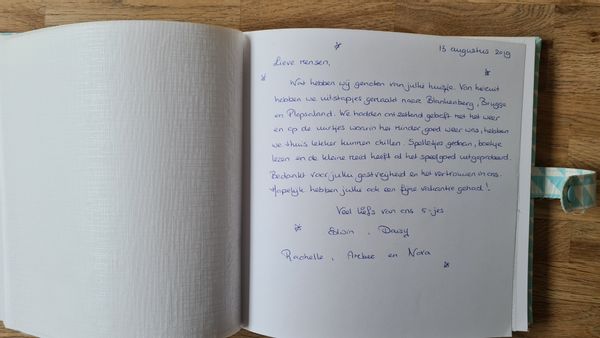 13 augustus 2019
Lieve mensen,
Wat hebben wij genoten van jullie huisje. Van hieruit
hebben we uitstapjes gemaakt naar Blankenberg, Brugge
en Plopsaland. We hadden ontzettend geboft met het weer
en op de uurtjes waarin het minder goed weer was, hebben
we thuis lekker kunnen chillen. Spelletjes gedaan, boekje
lezen en de kleine meid heeft al het speelgoed uitgeprobeerd.
Bedankt voor jullie gastvrijheid en het vertrouwen in ons.
Hopelijk hebben jullie ook een fijne vakantie gehad!
Veel liefs van ons 5-jes
Edwin, Daisy
Rachelle, en Nora